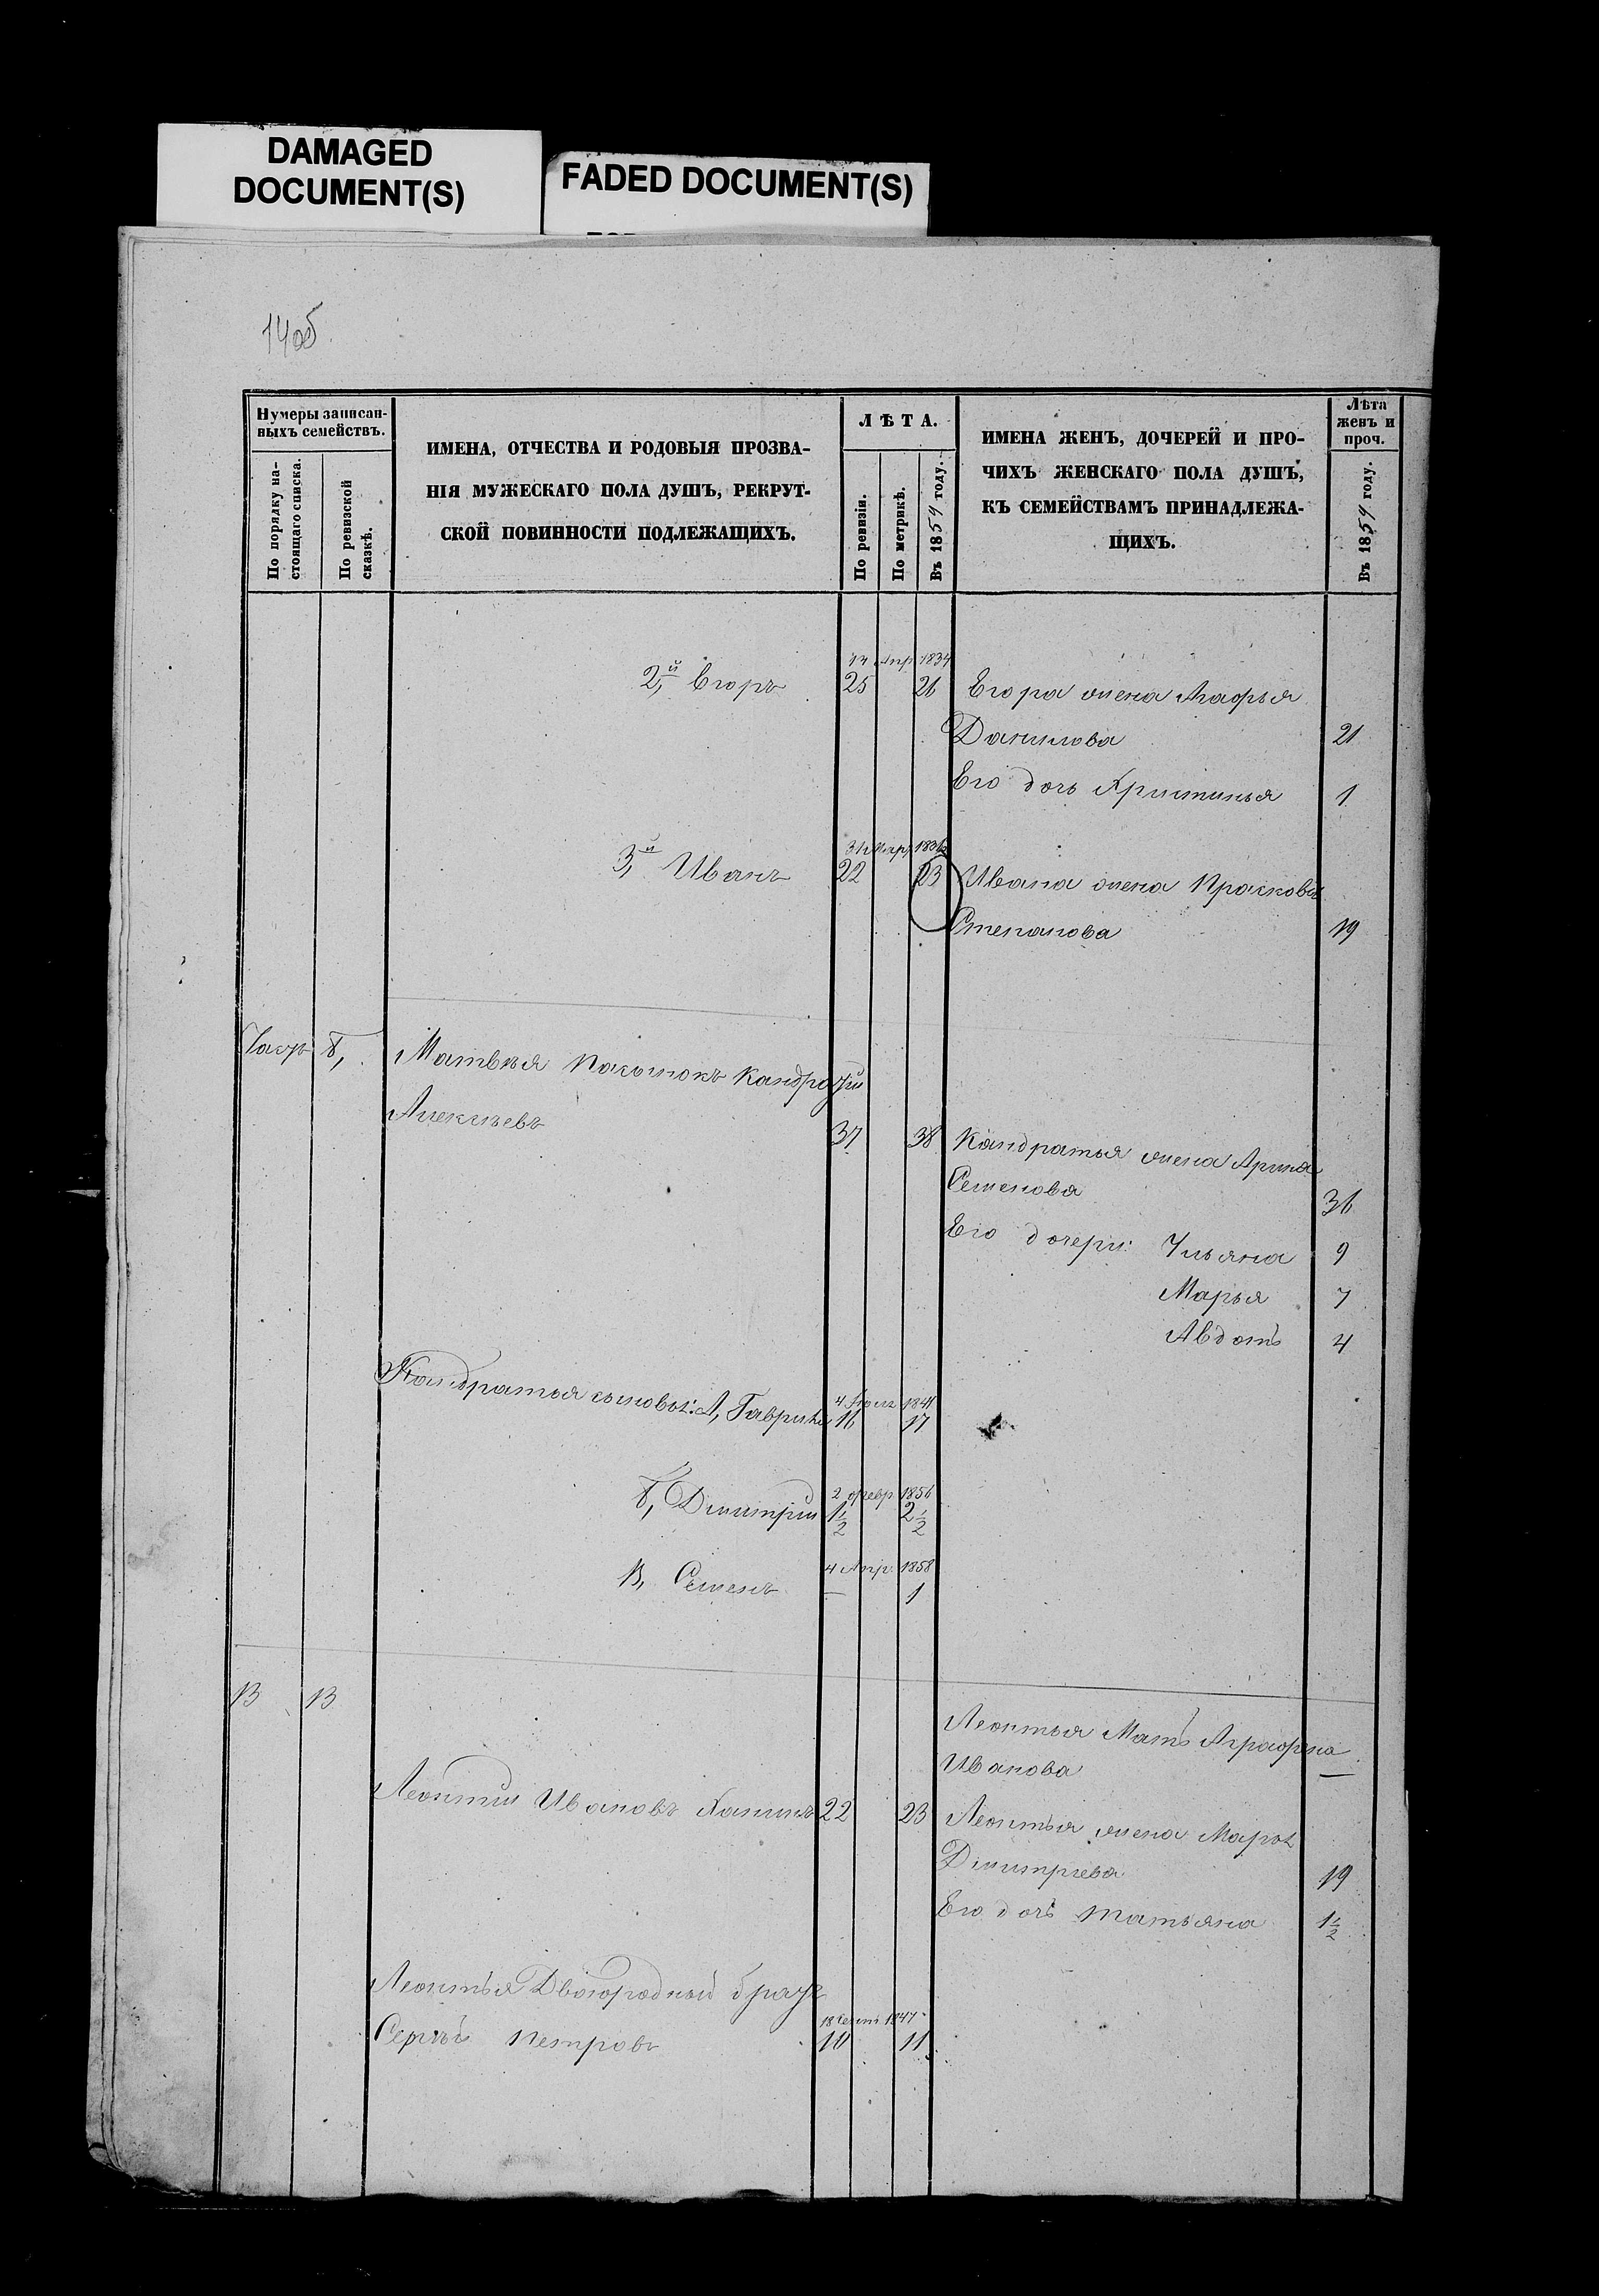 DAMAGED
DOCUMENT(S)
FADED DOCUMENT(S)
14об
Нумеры записан-
ныхъ семействъ.
По порядку на-
стоящаго списка.
По ревизской
сказкѣ.
ИМЕНА, ОТЧЕСТВА И РОДОВЫЯ ПРОЗВА-
НІЯ МУЖЕСКАГО ПОЛА ДУШЪ, РЕКРУТ-
СКОЙ ПОВИННОСТИ ПОДЛЕЖАЩИХЪ.
ЛѢТА.
По ревизіи.
По метрикѣ.
Въ 1859 году.
ИМЕНА ЖЕНЪ, ДОЧЕРЕЙ И ПРО-
ЧИХЪ ЖЕНСКАГО ПОЛА ДУШЪ,
КЪ СЕМЕЙСТВАМЪ ПРИНАДЛЕЖА-
ЩИХЪ.
Лѣта
женъ и
проч.
Въ 1859 году.
Апр 1834
2,й Егоръ 25 26 Егора жена Агафья
Данилова 21
Его дочь Христинья 1
3,й Иванъ 22 23 Ивана жена Прасковья
Степанова 19
б, Матвѣя Пасынокъ Кандратій
Алексѣевъ 37 38 Кандратья жена Арина
Семенова 36
Его дочери: Ульяна 9
Марья 7
Авдотья 4
4 1841
Кандратья сыновья: А, Гаврила 16 17
2 февр 1856
б, Димитрій 1½ 2½
4 Апр. 1858
В, Семенъ — 1
В В
Леонтья Мать Аграфена
Иванова —
Леонтій Ивановъ 22 23 Леонтья жена Марья
Димитріева 19
Его дочь Татьяна 1½
Леонтья Двоюродный братъ
18 Сент 1847
Сергѣй Петровъ 10 11